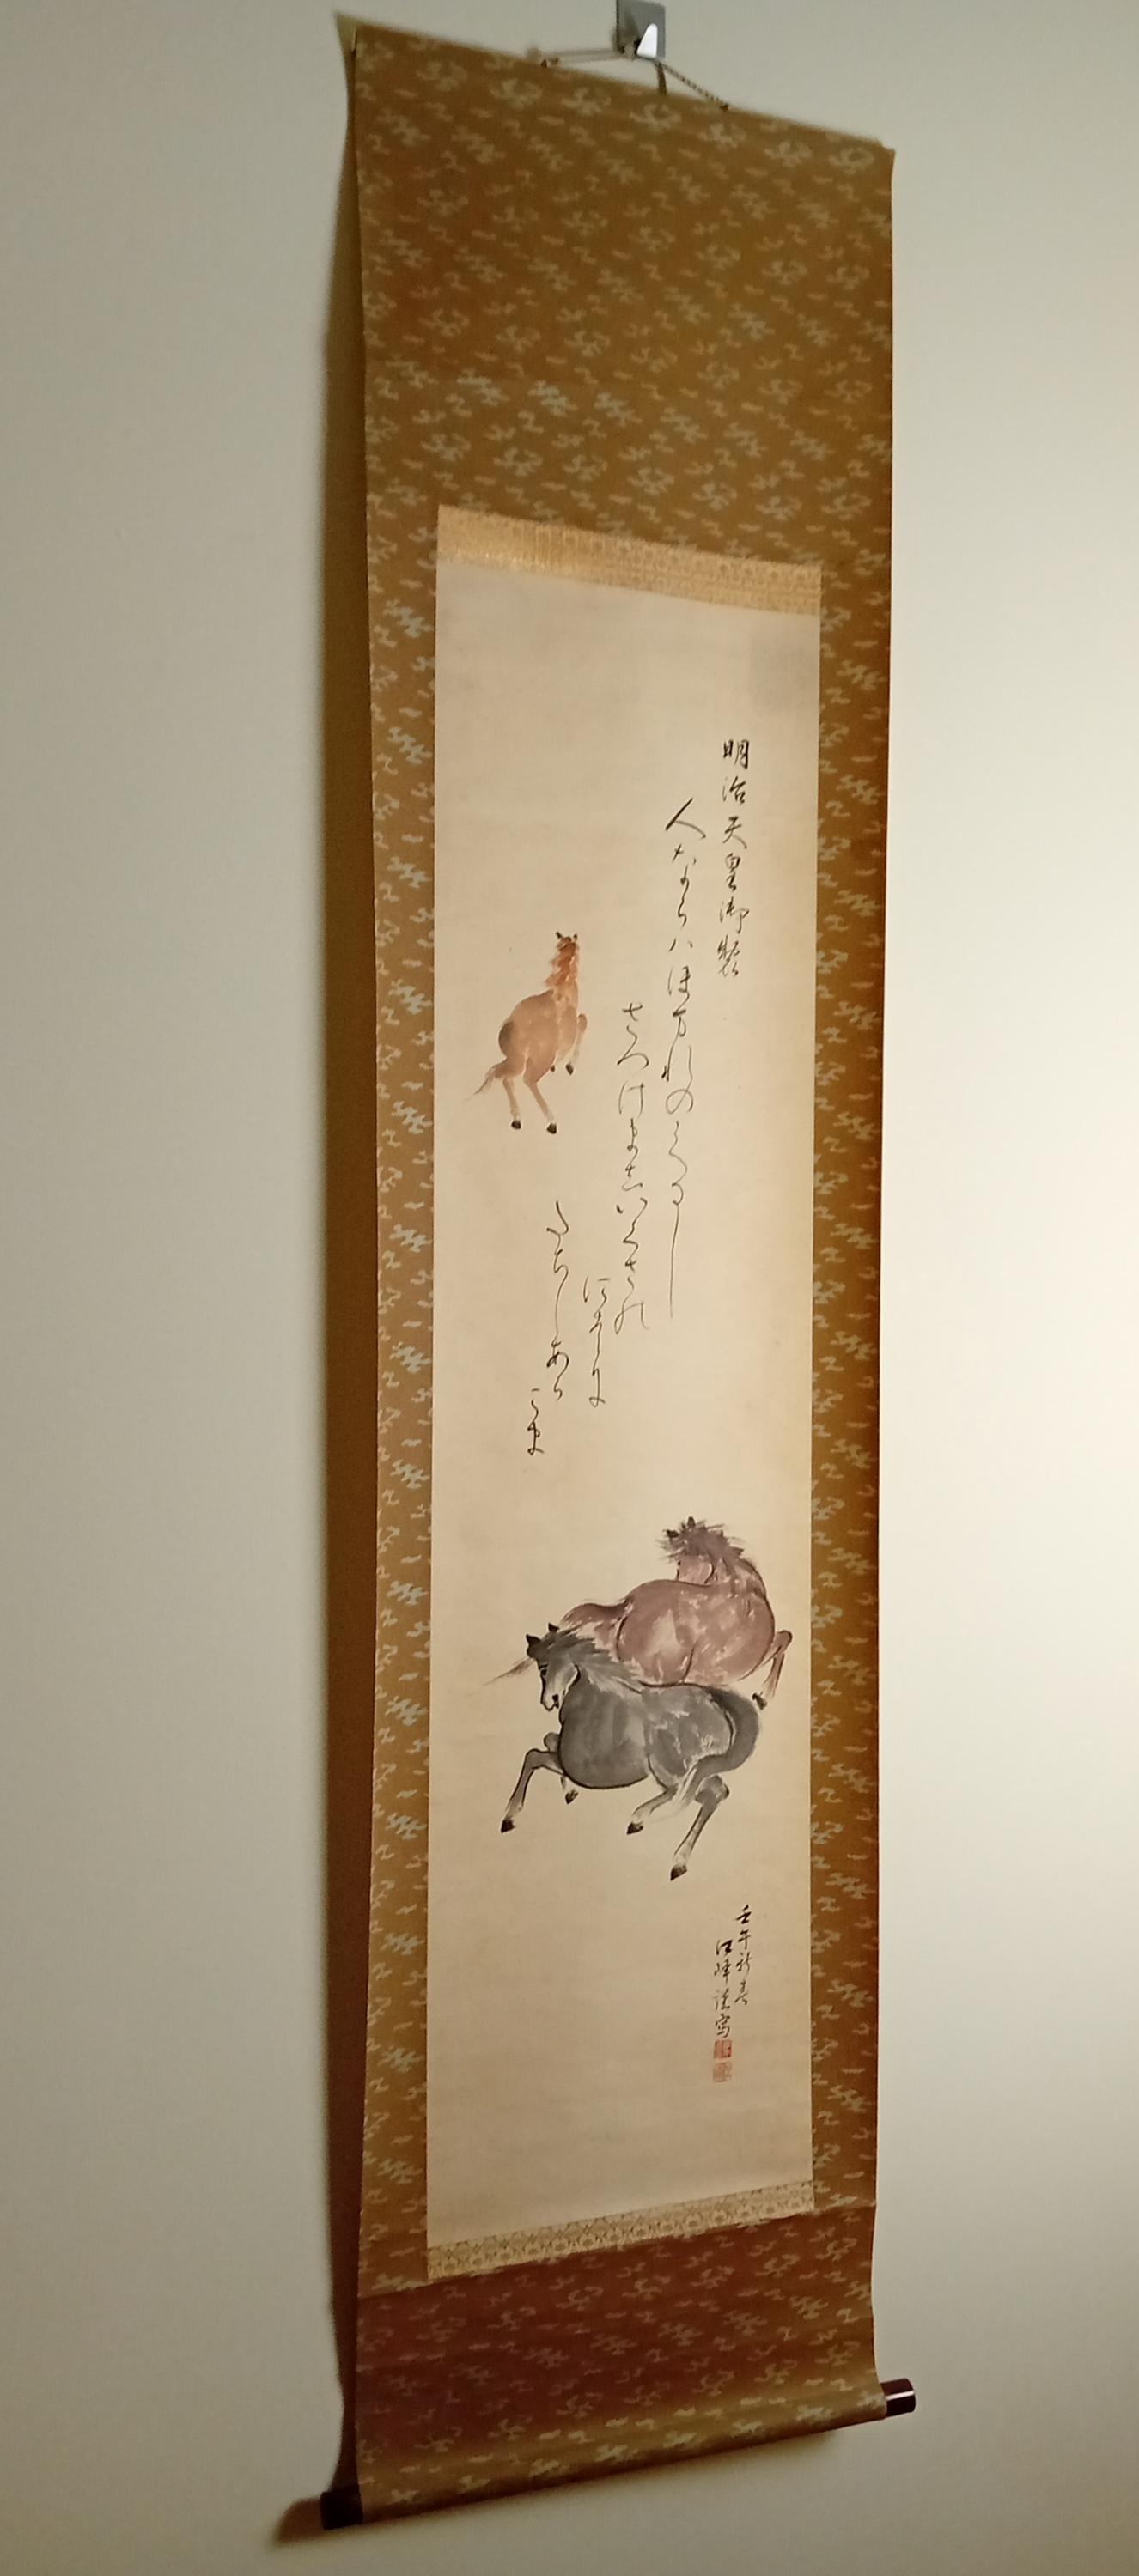 明治天皇御製
人ならハほまれのしるし
さつけましいくさの
にはに
たちしあら
こま
壬午新春
江峰謹写